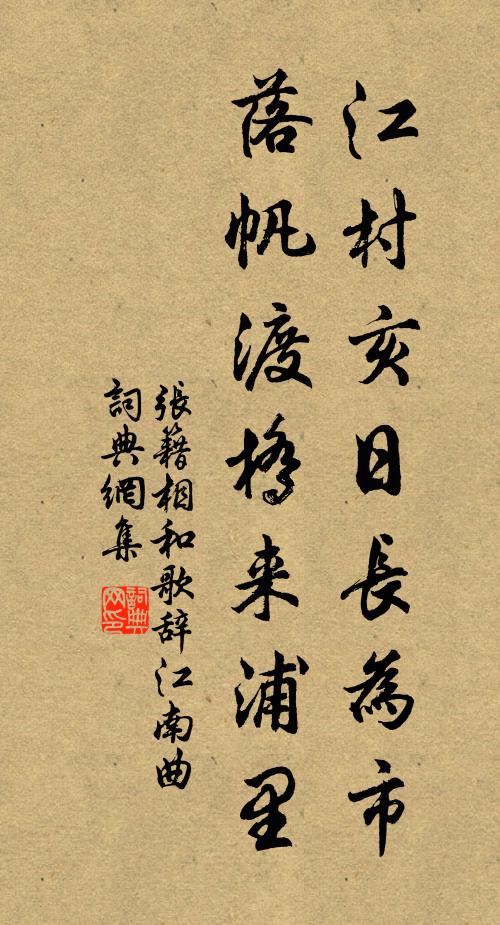 江村亥日長為市
落帆渡橋来浦里
張籍相和歌辞江南曲
詞典網集
詞典網印